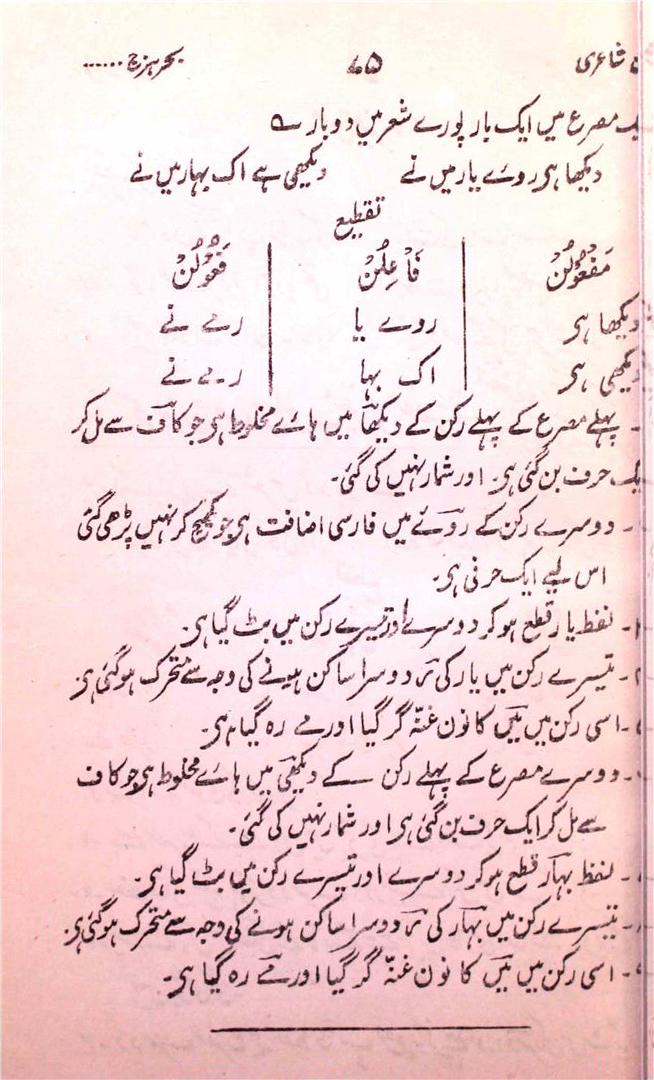 شاعری ۷۵ بحر ہزج ......
مصرع میں ایک بار پورے شعر میں دو بار ے
دیکھا ہی روے یار میں نے دیکھی ہے اک بہار میں نے
تقطیع
مَفْعُوْلُنْ فَاْعِلُنْ فَعُوْلُنْ
دیکھا ہی روے یا رے نے
دیکھی ہی اک بہا رے نے
۔ پہلے مصرع کے پہلے رکن کے دیکھا میں ہاے مخلوط ہی جو کاف سے مل کر
ایک حرف بن گئی ہی۔ اور شمار نہیں کی گئی۔
۔ دوسرے رکن کے روئے میں فارسی اضافت ہی جو کھینچ کر نہیں پڑھی گئی
اس لیے ایک حرفی ہی۔
۔ لفظ یار قطع ہو کر دوسرے اور تیسرے رکن میں بٹ گیا ہی۔
۔ تیسرے رکن میں یار کی ر دوسرا ساکن ہونے کی وجہ سے متحرک ہو گئی ہی۔
۔ اسی رکن میں میں کا نون غنّہ گر گیا اور مے رہ گیا ہی۔
۔ دوسرے مصرع کے پہلے رکن کے دیکھی میں ہاے مخلوط ہی جو کاف
سے مل کر ایک حرف بن گئی ہی اور شمار نہیں کی گئی۔
۔ لفظ بہار قطع ہو کر دوسرے اور تیسرے رکن میں بٹ گیا ہی۔
۔ تیسرے رکن میں بہار کی ر دوسرا ساکن ہونے کی وجہ سے متحرک ہو گئی ہی۔
۔ اسی رکن میں میں کا نون غنّہ گر گیا اور مے رہ گیا ہی۔